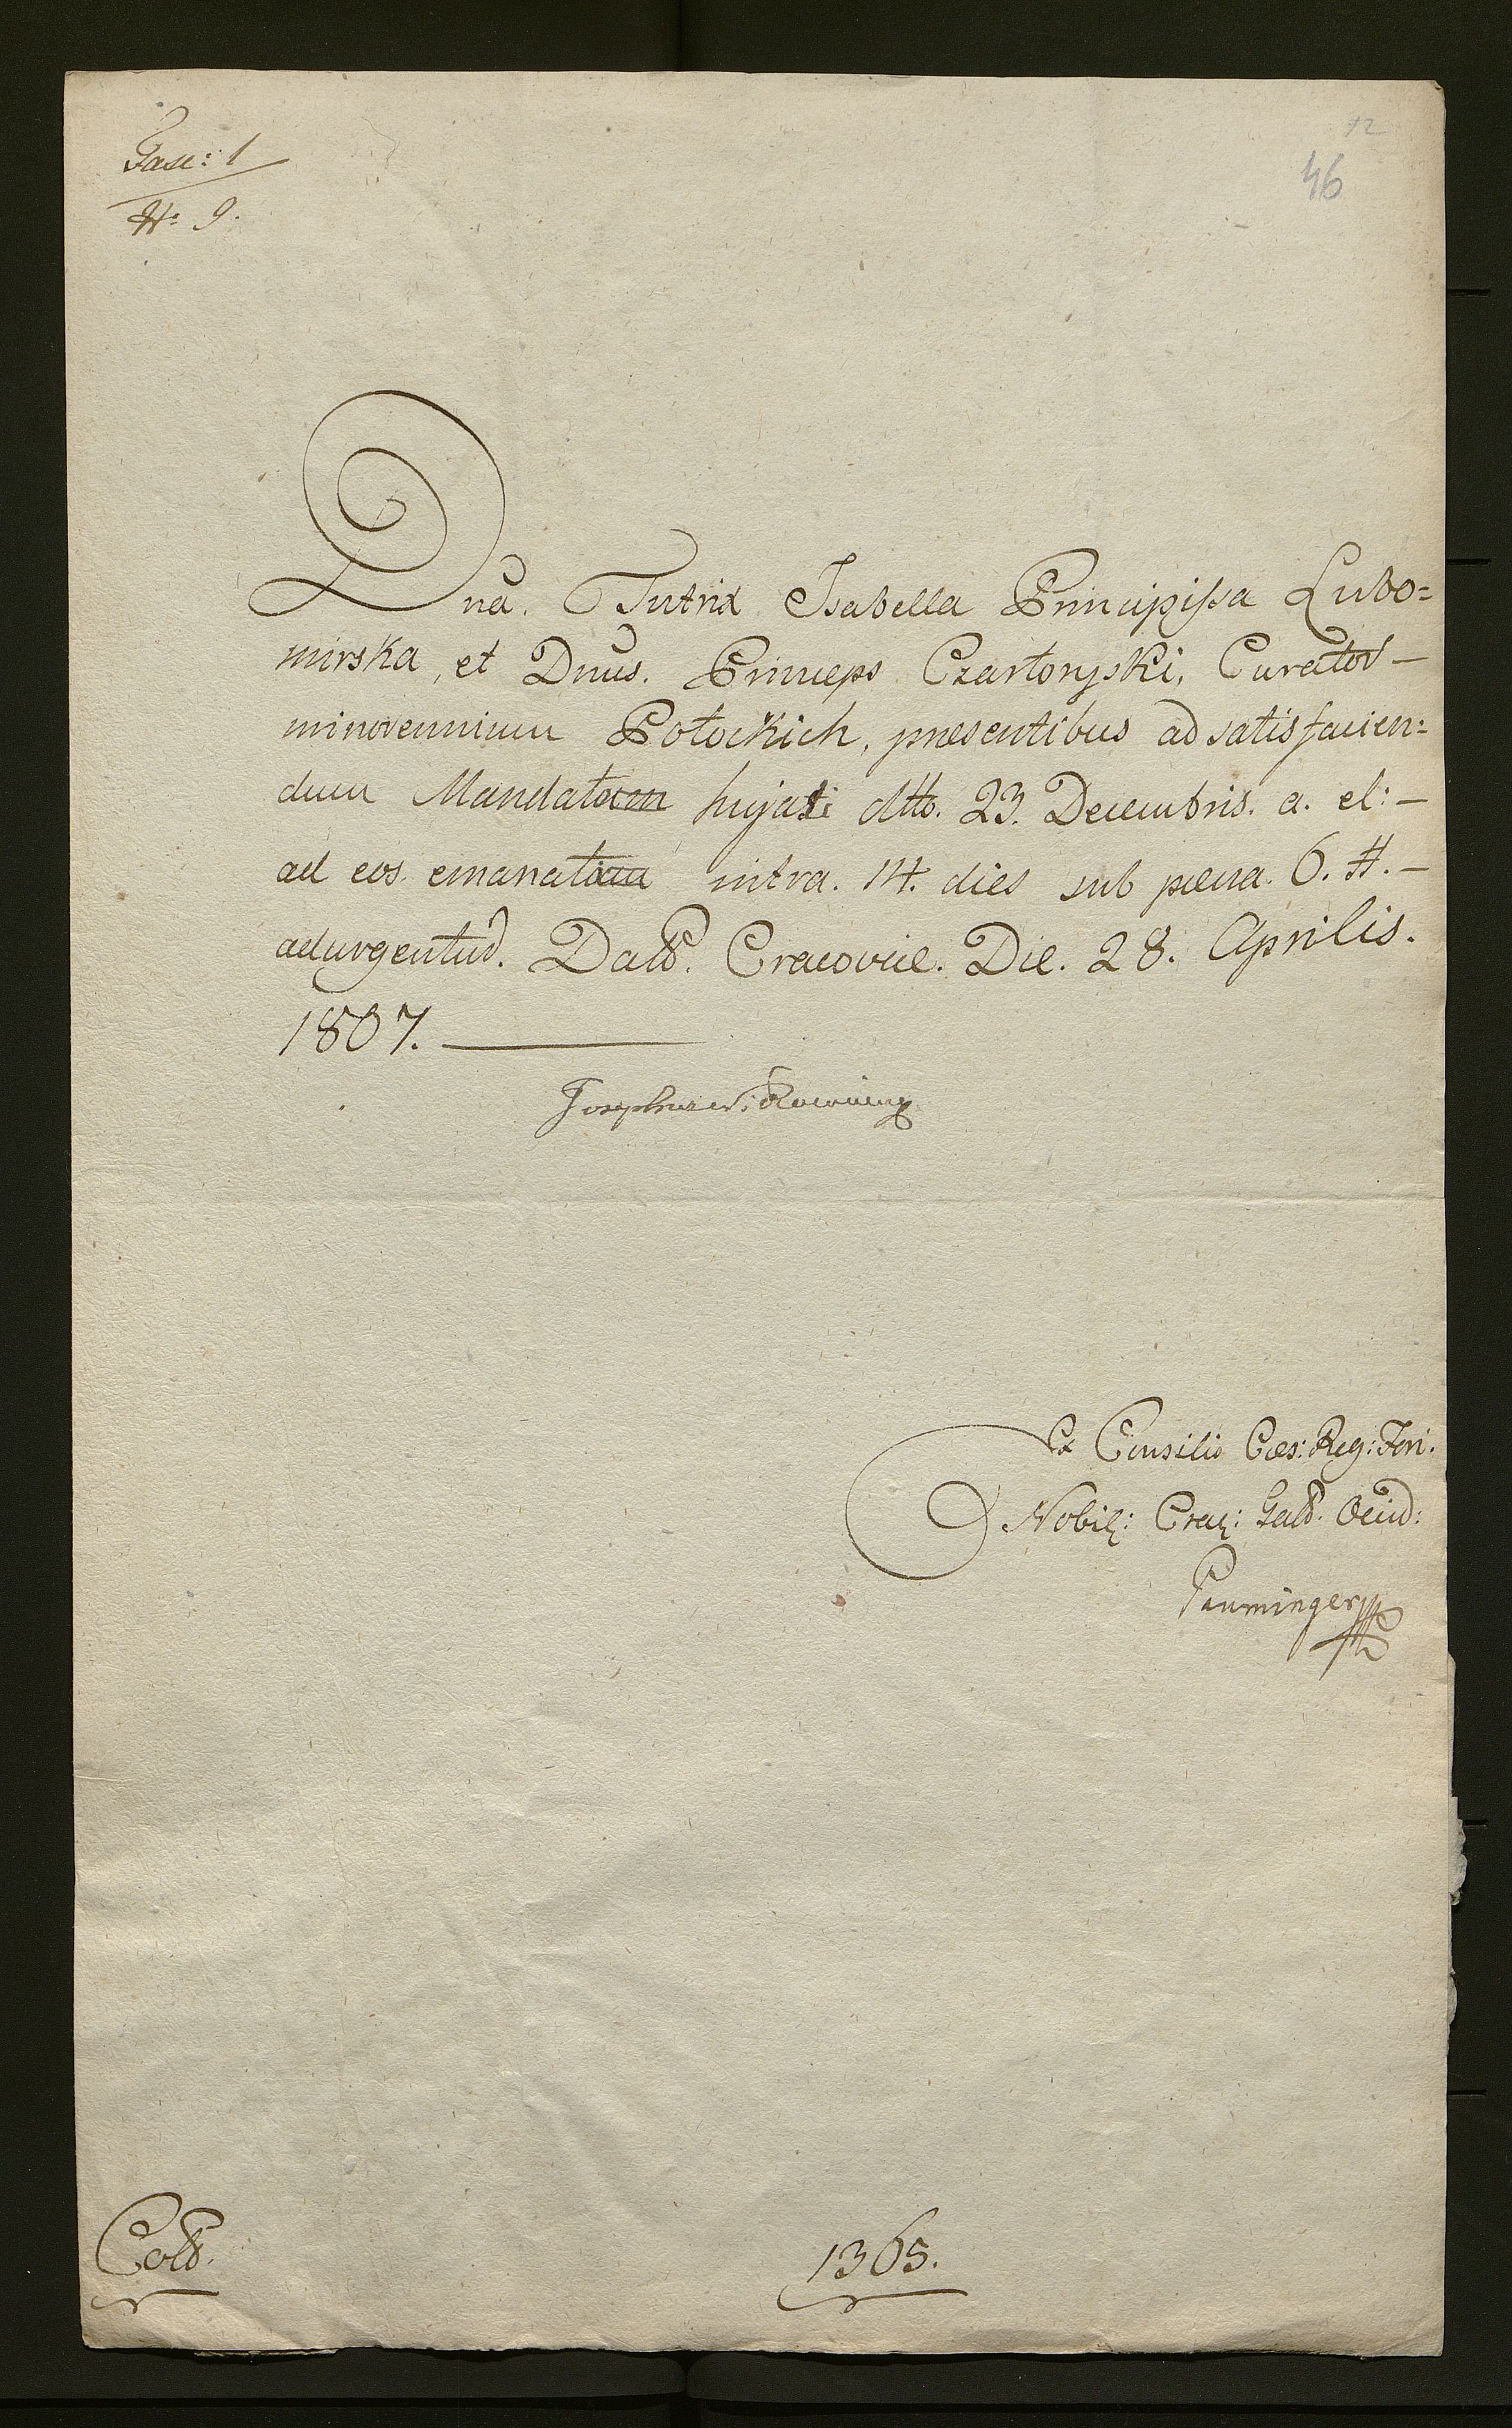 Fasc: 1
N: 9.
12
46
Dna. Tutrix Isabella Principissa Lubo=
mirska, et Dnus. Princeps Czartoryski, Curator –
minorennium Potockich, presentibus ad satisfacien=
dum Mandatum hujati dtto. 23. Decembris. a. el: –
ad eos emanatum intra. 14. dies sub poena. 6. #. –
adurgentur. Datt. Cracoviae. Die. 28. Aprilis.
1807.
Josephus
Ex Consilio Caes: Reg: Fori.
Nobil: Crac: Gall. Occid:
Pauminger
Coll.
1365.